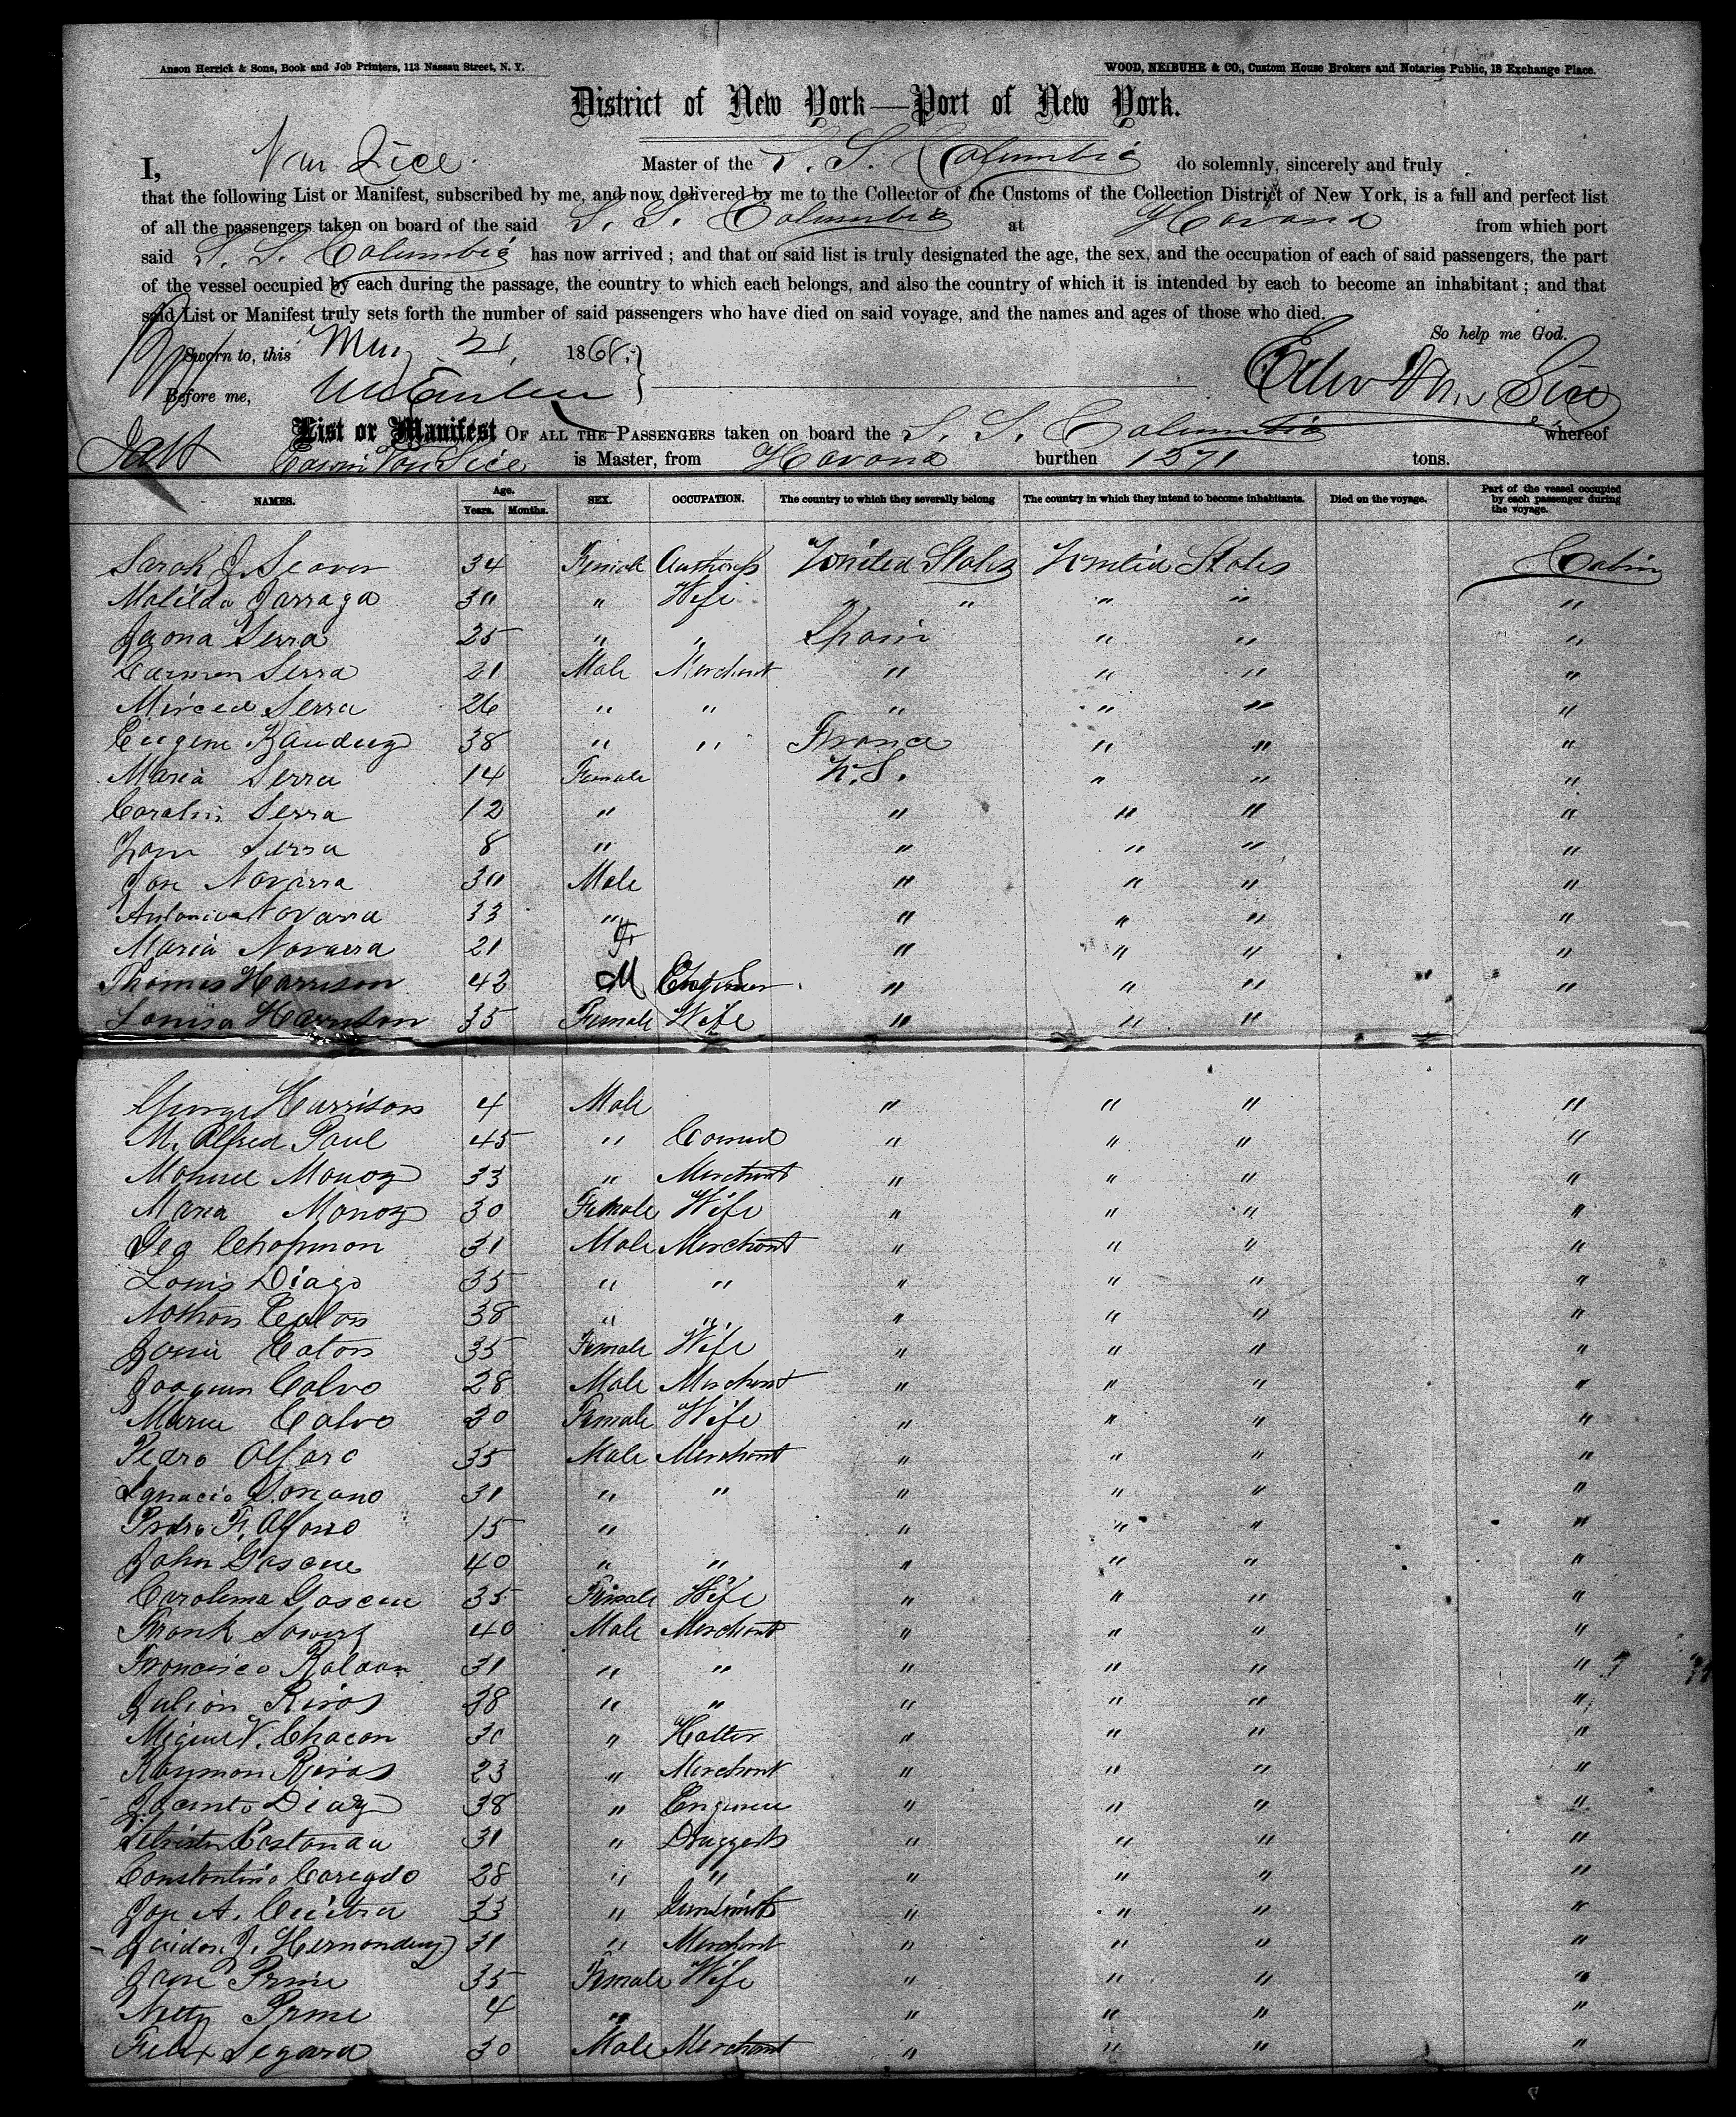 Anson Herrick & Sons, Book and Job Printers, 113 Nassau Street, N. Y.
WOOD, NEIBUHR & CO., Custom House Brokers and Notaries Public, 18 Exchange Place.
District of New York—Port of New York.
I, Van Sice Master of the S. S. Columbia do solemnly, sincerely and truly
that the following List or Manifest, subscribed by me, and now delivered by me to the Collector of the Customs of the Collection District of New York, is a full and perfect list
of all the passengers taken on board of the said S. S. Columbia at Havana from which port
said S. S. Columbia has now arrived; and that on said list is truly designated the age, the sex, and the occupation of each of said passengers, the part
of the vessel occupied by each during the passage, the country to which each belongs, and also the country of which it is intended by each to become an inhabitant; and that
said List or Manifest truly sets forth the number of said passengers who have died on said voyage, and the names and ages of those who died.
So help me God.
Sworn to, this 21, 186
Before me,
Edw Van Sice
List or Manifest OF ALL THE PASSENGERS taken on board the S. S. Columbia whereof
Edwin Van Sice is Master, from Havana burthen 1371 tons.
NAMES. Age. Years. Months. SEX. OCCUPATION. The country to which they severally belong The country in which they intend to become inhabitants. Died on the voyage. Part of the vessel occupied by each passenger during the voyage.
Sarah J. Seaver 34 Female Authoress United States United States Cabin
Matilda Jarraga 30 " Wife " " " " "
Serra 25 " " Spain " " "
Carmen Serra 21 Male Merchant " " " "
Merced Serra 26 " " " " " "
Eugene 38 " " France " " "
Maria Serra 14 Female U.S. " " "
Carolin Serra 12 " " " " "
Serra 8 " " " " "
Jose Navarra 30 Male " " " "
Antonio Navarra 33 " " " " "
Maria Navarra 21 F " " " "
Thomas Harrison 42 M " " " "
Louisa Harrison 35 Female Wife " " "
George Harrison 4 Male " " " "
M. Alfred Paul 45 " Consul " " " "
Manuel Monoz 33 " Merchant " " " "
Maria Monoz 30 Female Wife " " " "
Geo Chapman 31 Male Merchant " " " "
Louis Diago 35 " " " " " "
Nathan Eaton 38 " " " " " "
Eaton 35 Female Wife " " " "
Joaquin Calvo 28 Male Merchant " " " "
Marie Calvo 30 Female Wife " " " "
Pedro Alfaro 35 Male Merchant " " " "
Ignacio Soriano 31 " " " " " "
Pedro F. Alfonso 15 " " " " "
John Gascue 40 " " " " " "
Carolina Gascue 35 Female Wife " " " "
Frank 40 Male Merchant " " " "
Francisco Roldan 31 " " " " " "
Julian Rivas 38 " " " " " "
Miguel V. Chacon 30 " Hatter " " " "
Raymon Rivas 23 " Merchant " " " "
Jacinto Diaz 38 " Engineer " " " "
31 " Druggists " " " "
Constantino 28 " " " " " "
A. 33 " Gunsmith " " " "
J. Hernandez 31 " Merchant " " " "
Jane Prime 35 Female Wife " " " "
Netty Prime 4 " " " " "
Felix Segara 30 Male Merchant " " " "